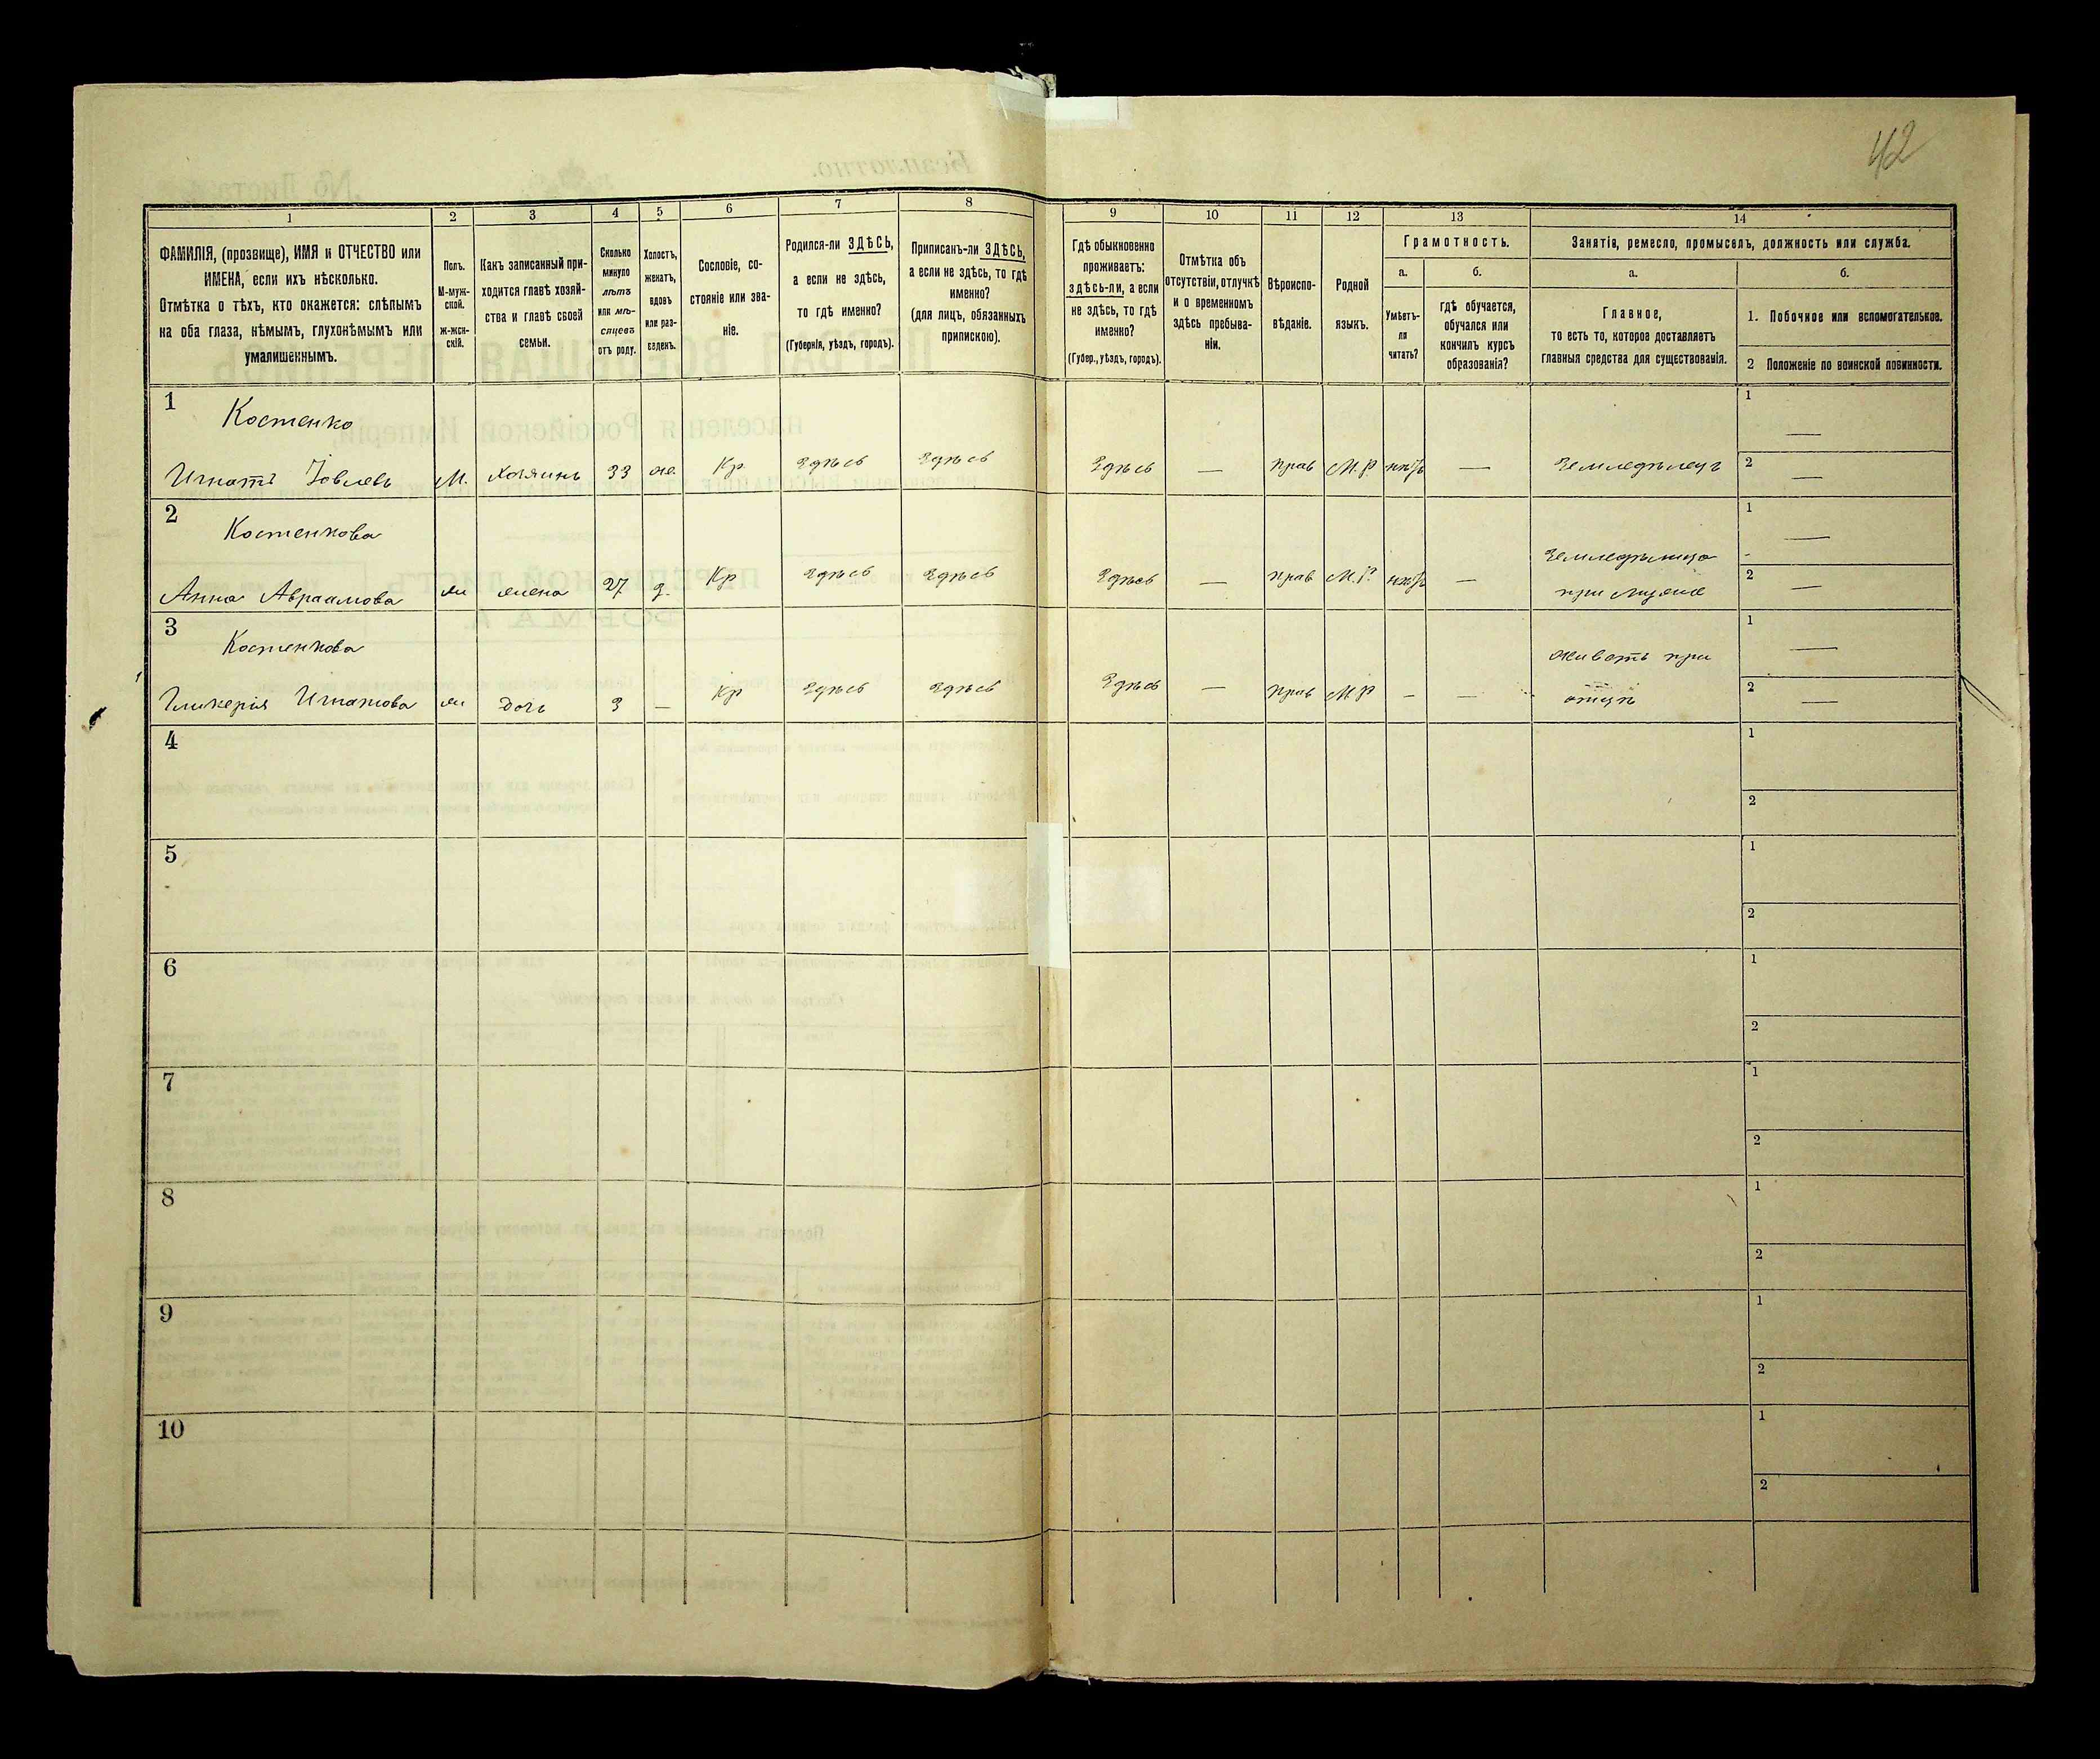 42
1 2 3 4 5 6 7 8 9 10 11 12 13 14
ФАМИЛІЯ, (прозвище), ИМЯ и ОТЧЕСТВО или
ИМЕНА, если ихъ нѣсколько.
Отмѣтка о тѣхъ, кто окажется: слѣпымъ
на оба глаза, нѣмымъ, глухонѣмымъ или
умалишеннымъ.
Полъ.
М-муж-
ской.
ж-жен-
скій.
Какъ записанный при-
ходится главѣ хозяй-
ства и главѣ своей
семьи.
Сколько
минуло
лѣтъ
или мѣ-
сяцевъ
отъ роду.
Холостъ,
женатъ,
вдовъ
или раз-
веденъ.
Сословіе, со-
стояніе или зва-
ніе.
Родился-ли ЗДѢСЬ,
а если не здѣсь,
то гдѣ именно?
(Губернія, уѣздъ, городъ).
Приписанъ-ли ЗДѢСЬ,
а если не здѣсь, то гдѣ
именно?
(для лицъ, обязанныхъ
припискою).
Гдѣ обыкновенно
проживаетъ:
здѣсь-ли, а если
не здѣсь, то гдѣ
именно?
(Губер., уѣздъ, городъ).
Отмѣтка объ
отсутствіи, отлучкѣ
и о временномъ
здѣсь пребыва-
ніи.
Вѣроиспо-
вѣданіе.
Родной
языкъ.
Грамотность.
а. б.
Умѣетъ-
ли
читать?
гдѣ обучается,
обучался или
кончилъ курсъ
образованія?
Занятія, ремесло, промыселъ, должность или служба.
а. б.
Главное,
то есть то, которое доставляетъ
главныя средства для существованія.
1. Побочное или вспомогательное.
2 Положеніе по воинской повинности.
1 Костенко 1 —
Игнатъ Іовлевъ М. Хозяинъ 33 ж. Кр Здѣсь Здѣсь Здѣсь — прав М.Р. нѣтъ — Земледѣлецъ 2 —
2 Костенкова 1 —
Земледѣлица
Анна Авраамова ж жена 27 з. Кр Здѣсь Здѣсь Здѣсь — прав М.Р. нѣтъ — при мужѣ 2 —
3 Костенкова 1 —
живетъ при
Гликерія Игнатова ж дочь 3 — Кр Здѣсь Здѣсь Здѣсь — прав М.Р — — отцѣ 2 —
4 1
2
5 1
2
6 1
2
7 1
2
8 1
2
9 1
2
10 1
2